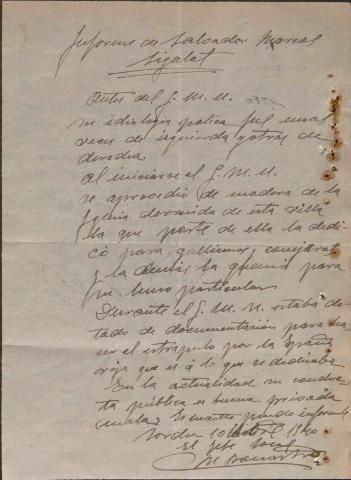 Informe de Salvador Marcos
Sigalat
Antes del G. M. N.
su idiologia politica fué unas
veses de izquierda y otras de
derecha.
Al iniciarse el G. M. N.
se aprocedio de madera de la
Iglesia derruida de esta villa
la que parte de ella la dedi-
có para gallinero, conejeras
y la demas la quemó para
su particular.
Durante el G. M. N. estaba do-
tado de documentacion para ha-
ser el estraperlo por la España
roja que es á lo que se dedicaba.
En la actualidad su conduc-
ta pública es buena, privada
(mala). Es cuanto puedo informarle
10 1940
El Jefe Local